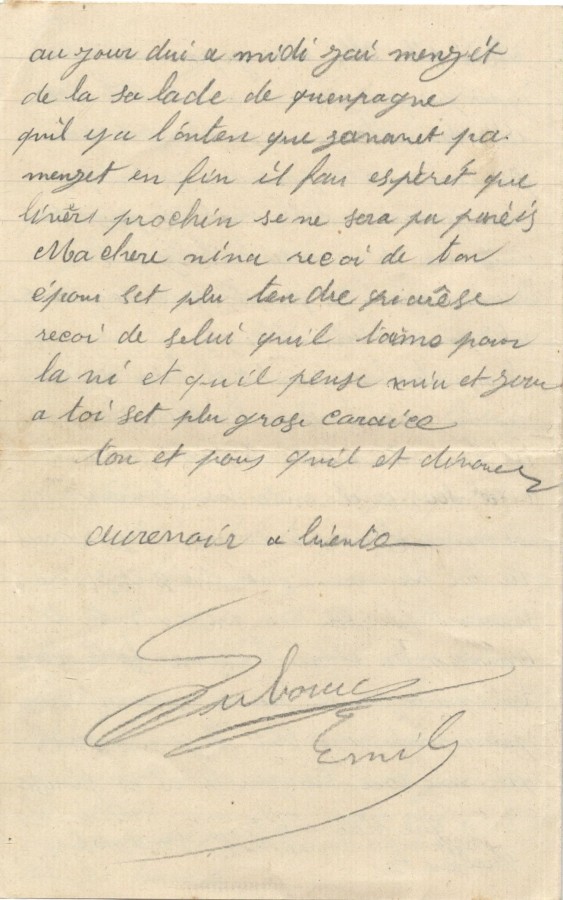 au jour dui a midi jai menzét
de la salade de quenpagne
quil ya lonten que janavet pa
menzet en fin il fau espérét que
livérs prochin se ne sera pa paréis
Machere nina recoi de ton
épous set plu tendre
recoi de selui quil taime pour
la vi et quil pense nui et jour
a toi set plu grose caraice
ton et pous quil et dévouez
aurevoir a biento
Emil